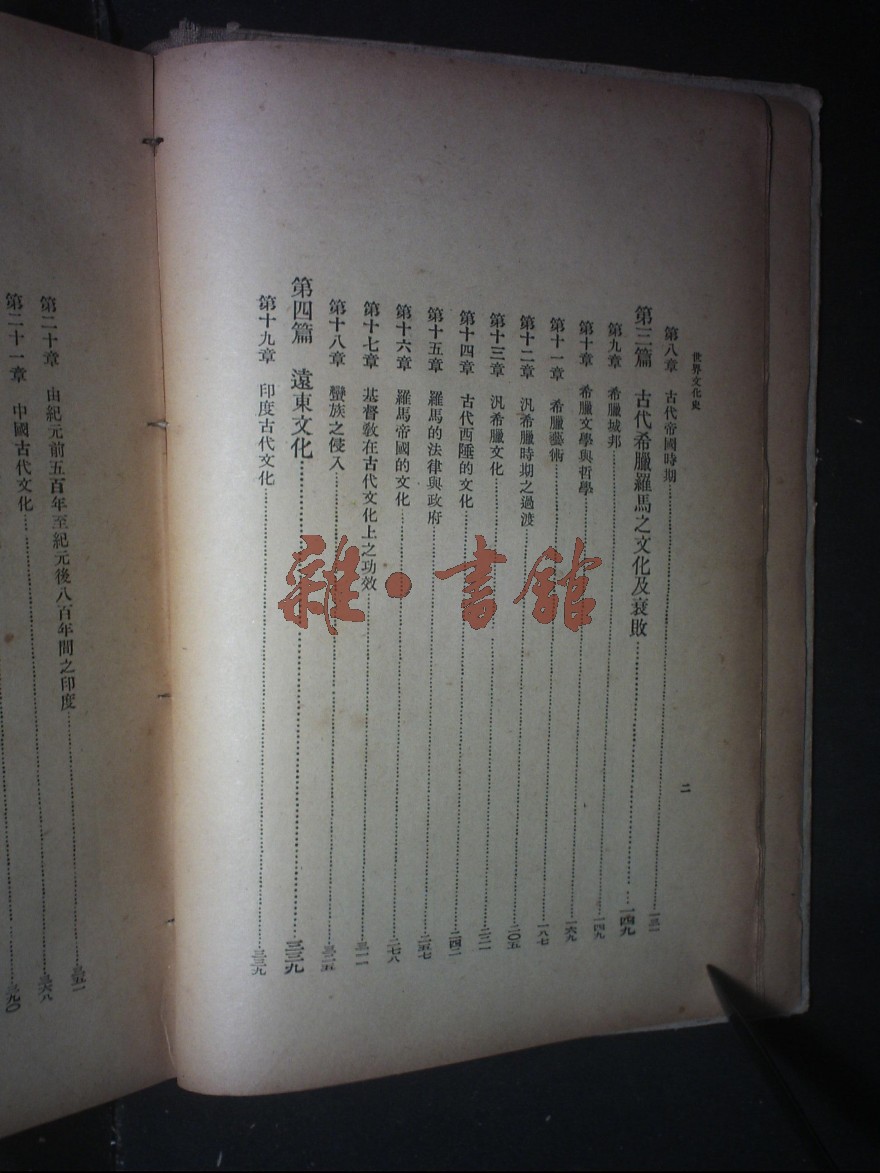 世界文化史
二
第八章 古代帝國時期……一三一
第三篇 古代希臘羅馬之文化及衰敗……一四九
第九章 希臘城邦……一四九
第十章 希臘文學與哲學……一六九
第十一章 希臘藝術……一八七
第十二章 汎希臘時期之過渡……二〇五
第十三章 汎希臘文化……二二一
第十四章 古代西陲的文化……二四二
第十五章 羅馬的法律與政府……二五七
第十六章 羅馬帝國的文化……二七八
第十七章 基督教在古代文化上之功效……三一一
第十八章 蠻族之侵入……三二五
第四篇 遠東文化……三三九
第十九章 印度古代文化……三三九
第二十章 由紀元前五百年至紀元後八百年間之印度……三五一
第二十一章 中國古代文化……三六八
三九〇
雜·書館